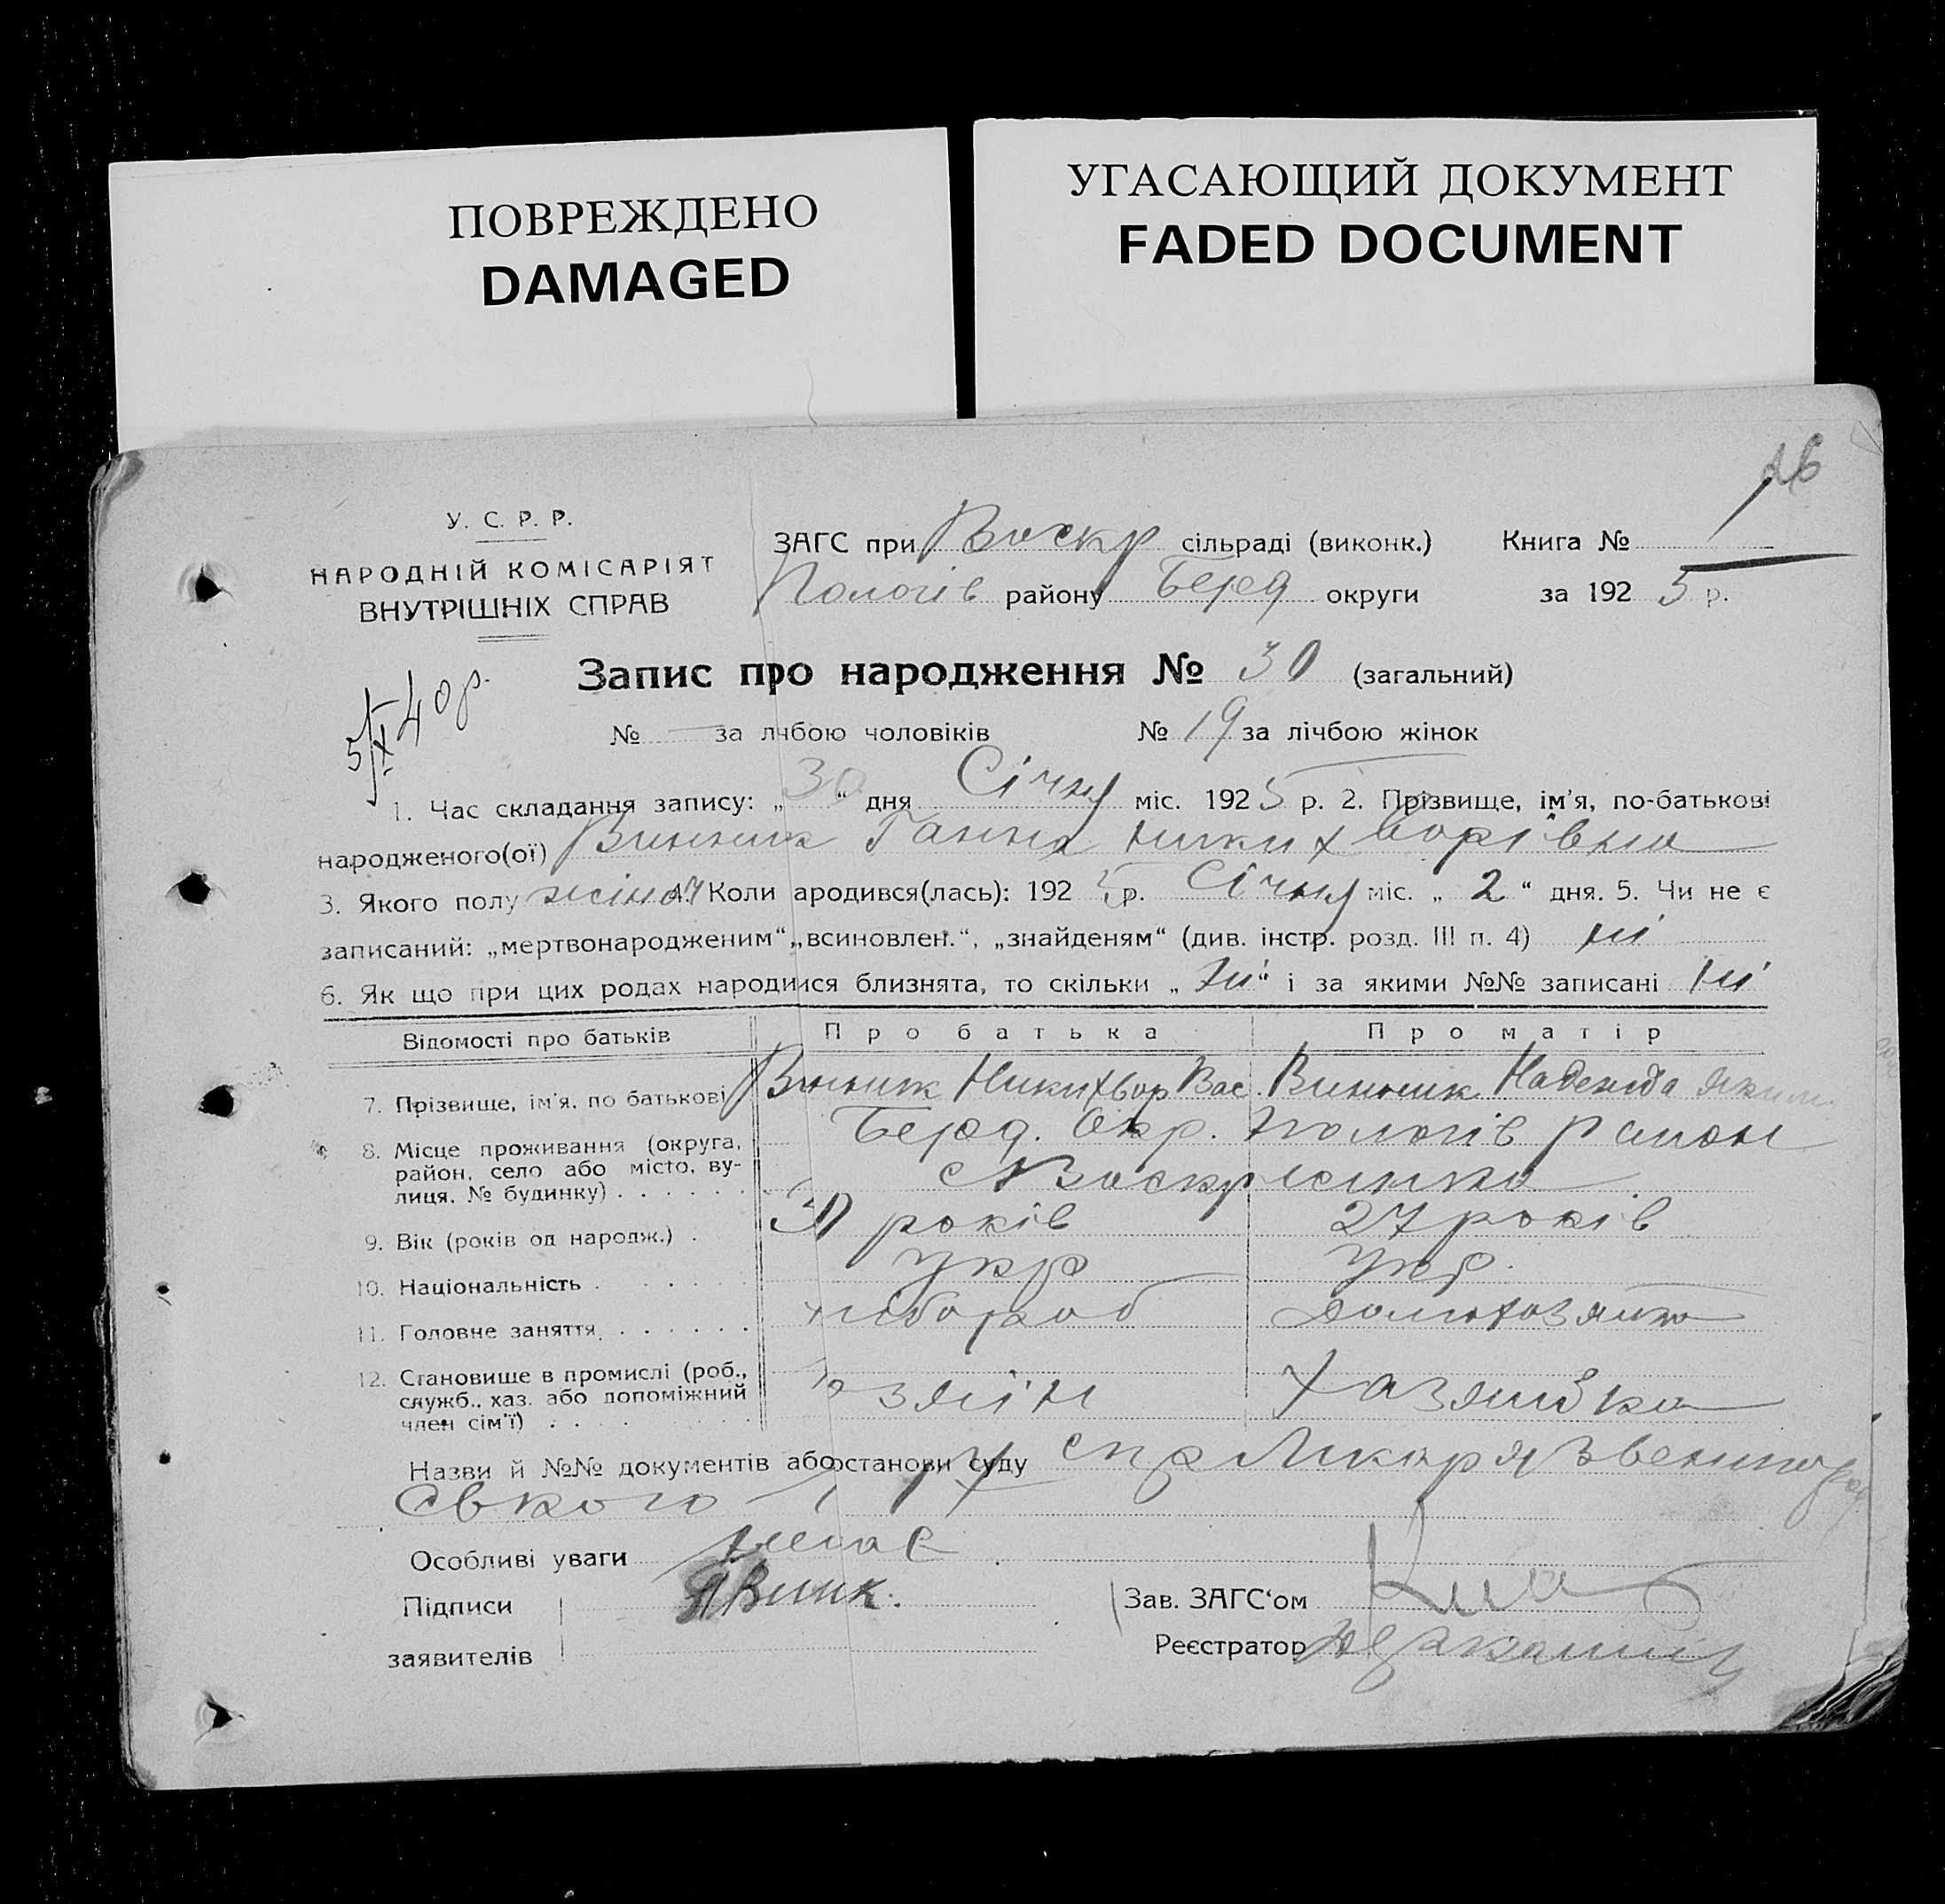 ПОВРЕЖДЕНО
DAMAGED
УГАСАЮЩИЙ ДОКУМЕНТ
FADED DOCUMENT
16
У. С. Р. Р.
НАРОДНІЙ КОМІСАРІЯТ
ВНУТРІШНІХ СПРАВ
ЗАГС при Воскр сільраді (виконк.) Книга № 1
Пологів району Берд округи за 1925 р.
Запис про народження № 30 (загальний)
5/IX 40р.
№ — за лічбою чоловіків № 19 за лічбою жінок
1. Час складання запису: „30“ дня Січня міс. 1925 р. 2. Прізвище, ім'я, по-батькові
народженого(ої) Винник Ганна Никихворівна
3. Якого полу жіноч 4. Коли ародився(лась): 1925 р. Січня міс. „2“ дня. 5. Чи не є
записаний: „мертвонародженим“ „всиновлен.“, „знайденям“ (див. інстр. розд. III п. 4) ні
6. Як що при цих родах народився близнята, то скільки „ні“ і за якими №№ записані ні
Відомості про батьків Про батька Про матір
7. Прізвище, ім'я, по батькові Винник Никихвор Вас. Винник Надежда Яким.
8. Місце проживання (округа, район, село або місто, вулиця, № будинку) Берд. Окр. Пологів район
с Воскрисенка
9. Вік (років од народж.) 30 років 27 років
10. Національність укр укр.
11. Головне заняття хлібороб домохозяйка
12. Становище в промислі (роб., служб., хаз. або допоміжний член сім'ї) хозяїн хазяйка
Назви й №№ документів або останови суду спр Лікаря Звениго
ського
Особливі уваги немає
Підписи Винк.
заявителів
Зав. ЗАГС'ом
Реєстратор